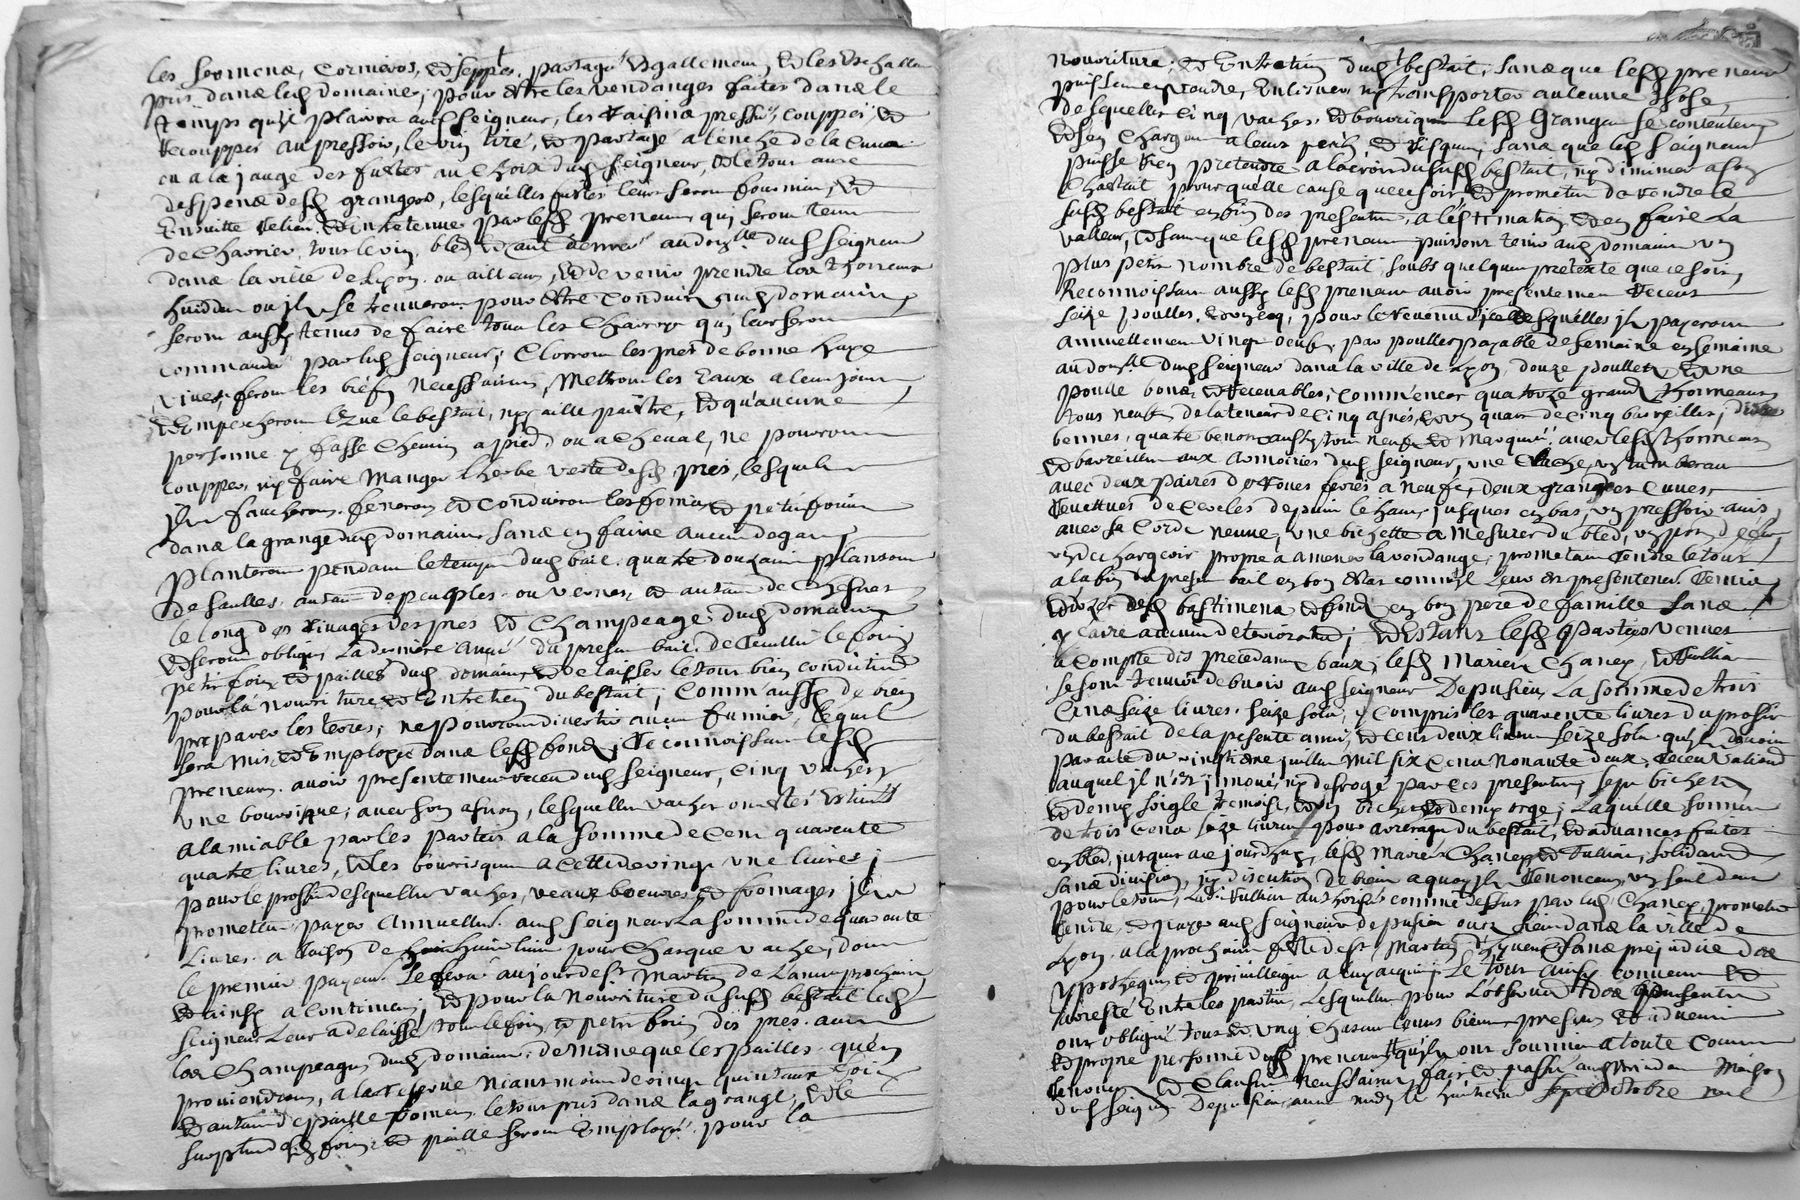 les semena, Corneros, et seppes, partagé esgallement, et les eschallas
pris dans led domaine, pour estre les vendanges faites dans le
temps qu'il plairra aud seigneur, les raisins pressés, couppés et
recouppés au pressoir, le vin tiré, et partagé a lenche de la cuve
ou a la jauge des fustes au choix dud seigneur, et le tout aux
despens desd grangers, lesquelles fustes leur seront fournies, et
Ensuitte reliées et entretenues par lesd preneurs qui seront tenu
de charrier tous le vin, bled et autres denrées au domlle dud seigneur
dans la ville de Lyon ou ailleurs, et de venir prendre les thonneaux
vuiddes ou ils se treuveront pour estre conduits aud domaine,
seront aussy tenus de faire tous les charrois qui leur seront
commandé par led seigneur, Clorront les prés de bonne haye
vive, feront les biefs necessaires, Mettront les Eaux a leur jour
et Empecheront que le bestail, ny aille paistre, et qu'aucune
personne y fasse chemin a pied ou a cheval, ne pourront
coupper, ny faire manger l'herbe verte desd prés, lesquels
ils faucheront, feneront et conduiront les foins et petit foins
dans la grange dud domaine sans en faire aucun degast,
Planteront pendant le temps dud bail quatre douzaine plansons
de saulles, autant de peuples ou vernes, et autant de chesnes
le long des rivages des prés et Champeage dud domaine
et seront obligés la derniere année du present bail de recueillir le foin
petit foin et pailles dud domaine, et de laisser le tout bien conditionné
pour la nourriture et Entretien du bestail; Comm'aussy de bien
preparer les terres; ne pourront divertir aucun fumier, lequel
sera mis et Employé dans lesd fonds; Reconnoissant lesd
preneurs avoir presentement receu dud seigneur, Cinq vaches,
une bourrique, avec son asnon, lesquelles vaches ont estés Estimés
a lamiable par les parties a la somme de Cent quarente
quatre livres, et les bourriques a Celle de vingt une livres;
pour le proffit desquelles vaches, veaux beurres et fromages ils
promettent payer Annuellemt aud seigneur La somme de quarante
Livres a raison de huict livres pour chasque vache; dont
le premier payemt se fera aujourd St Martin de L'année prochaine
et ainsy a continuer; et pour la nourriture du susd bestail led
seigneur Leur a delaissé tout le foin et petit foin des prés avec
les Champeages dud domaine; de mesme que les pailles qui en
proviendront, a la reserve neantmoins de vingt quintaux foin
et autant de paille froment le tout pris dans la grange, et le
surplus desd foins et paille seront Employé pour la
nourriture, et Entretien dud bestail, sans que lesd preneurs
puissent en vendre, Enlever ny transporter aucune chose,
desquelles cinq vaches, et bourrique lesd Grangers se contentent
et s'en chargent a leurs perils et risques, sans que led seigneur
puisse rien pretendre a la croix du susd bestail, ny diminuer a son
chastail pour quelle cause que ce soit, et promettent de rendre le
susd bestail en fin des presentes, a l'estimation, et en faire la
valleur, et sans que lesd preneurs puissent tenir aud domaine un
plus petit nombre de bestail soubs quelque pretexte que ce soit,
Reconnoissant aussy lesd preneurs avoir presentement receus
seize poulles, et un coq, pour le revenu d'icelles desquelles ils payeront
annuellement vingt oeufs par poulle payable de semaine en semaine
au domlle dud seigneur dans la ville de Lyon, douze poullets et une
poulle bons et recevables; commencer quatorze grands thonneaux
tous neufs de la teneur de Cinq asnés, et un quart de Cinq barreilles, dix
bennes, quatre benons aussy tout neufs et marqués, avec lesd thonneaux
et barreilles aux armoiries dud seigneur, une Cloche, un tumbereau
avec deux paires de roues ferrés a neuf, deux grandes cuves,
revettues de cercles depuis le haut jusques en bas, un pressoir avis
avec sa corde neuve, une bichette a mesurer du bled,
un dechargeoir propre a mener la vendange; promettant rendre le tout
a la fin du present bail en bon estat comm'il leur est presentement remis
et user desd bastimens et fonds en bon pere de famille sans
y faire aucune deterioration; Et Estans lesd parties venues
a compte des precedans baux, lesd mariés Chaney, et Tullian
se sont treuvés debvoir aud seigneur Depusieux La somme de trois
Cens seize livres, seize sols, y compris les quarente livres du proffit
du bestail de la presente année, et cent deux livres seize sols qu'ils devoient
par acte du vingtieme juillet mil six Cent Nonante deux, receu
auquel il n'est innové, ny desrogé par ces presentes, sept bichets
et demy soigle tremoise, et un bichet et demy orge; Laquelle somme
de trois Cens seize livres pour arrerages du bestail, et advances faites
en bled jusques au jourdhuy, lesd mariés Chaney et Tullian, solidairement
sans division, ny discution de biens a quoy ils renoncent, un seul d'eux
pour le tout, Lad Tullian authorisée comme dessus par led Chaney, promettent
rendre, et payer aud seigneur depusieux ou les siens dans la ville de
Lyon a la prochaine feste de St Martin d'hyver sans prejudice des
ypotheques et privilleges a luy acquis; Le tout ainsy convenu et
arresté Entre les parties, Lesquelles pour L'observation des presentes
ont obligé tous et ung chascun leurs biens presens et advenir
et propre personne desd preneurs qu'ils ont soummis a toute Cours
renonc et clauses necessaires, fait et passé aud Maison
dud seigneur Depusieux, avant midy le huictieme octobre mil